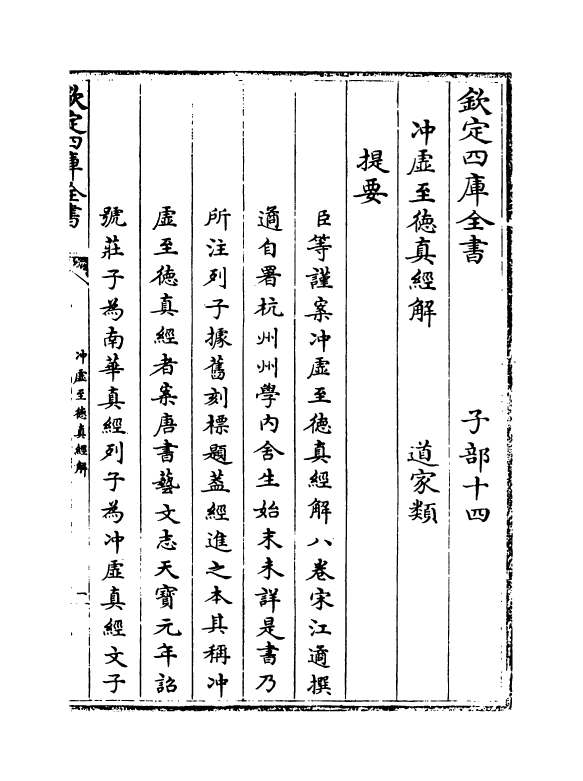 欽定四庫全書　子部十四
沖虛至德真經解　道家類
提要
臣等謹案沖虛至德真經解八卷宋江遹撰
遹自署杭州州學內舍生始末未詳是書乃
所注列子據舊刻標題葢經進之本其稱沖
虛至德真經者案唐書藝文志天寶元年詔
號莊子為南華真經列子為沖虛真經文子
欽定四庫全書
沖虛至德真經解
一